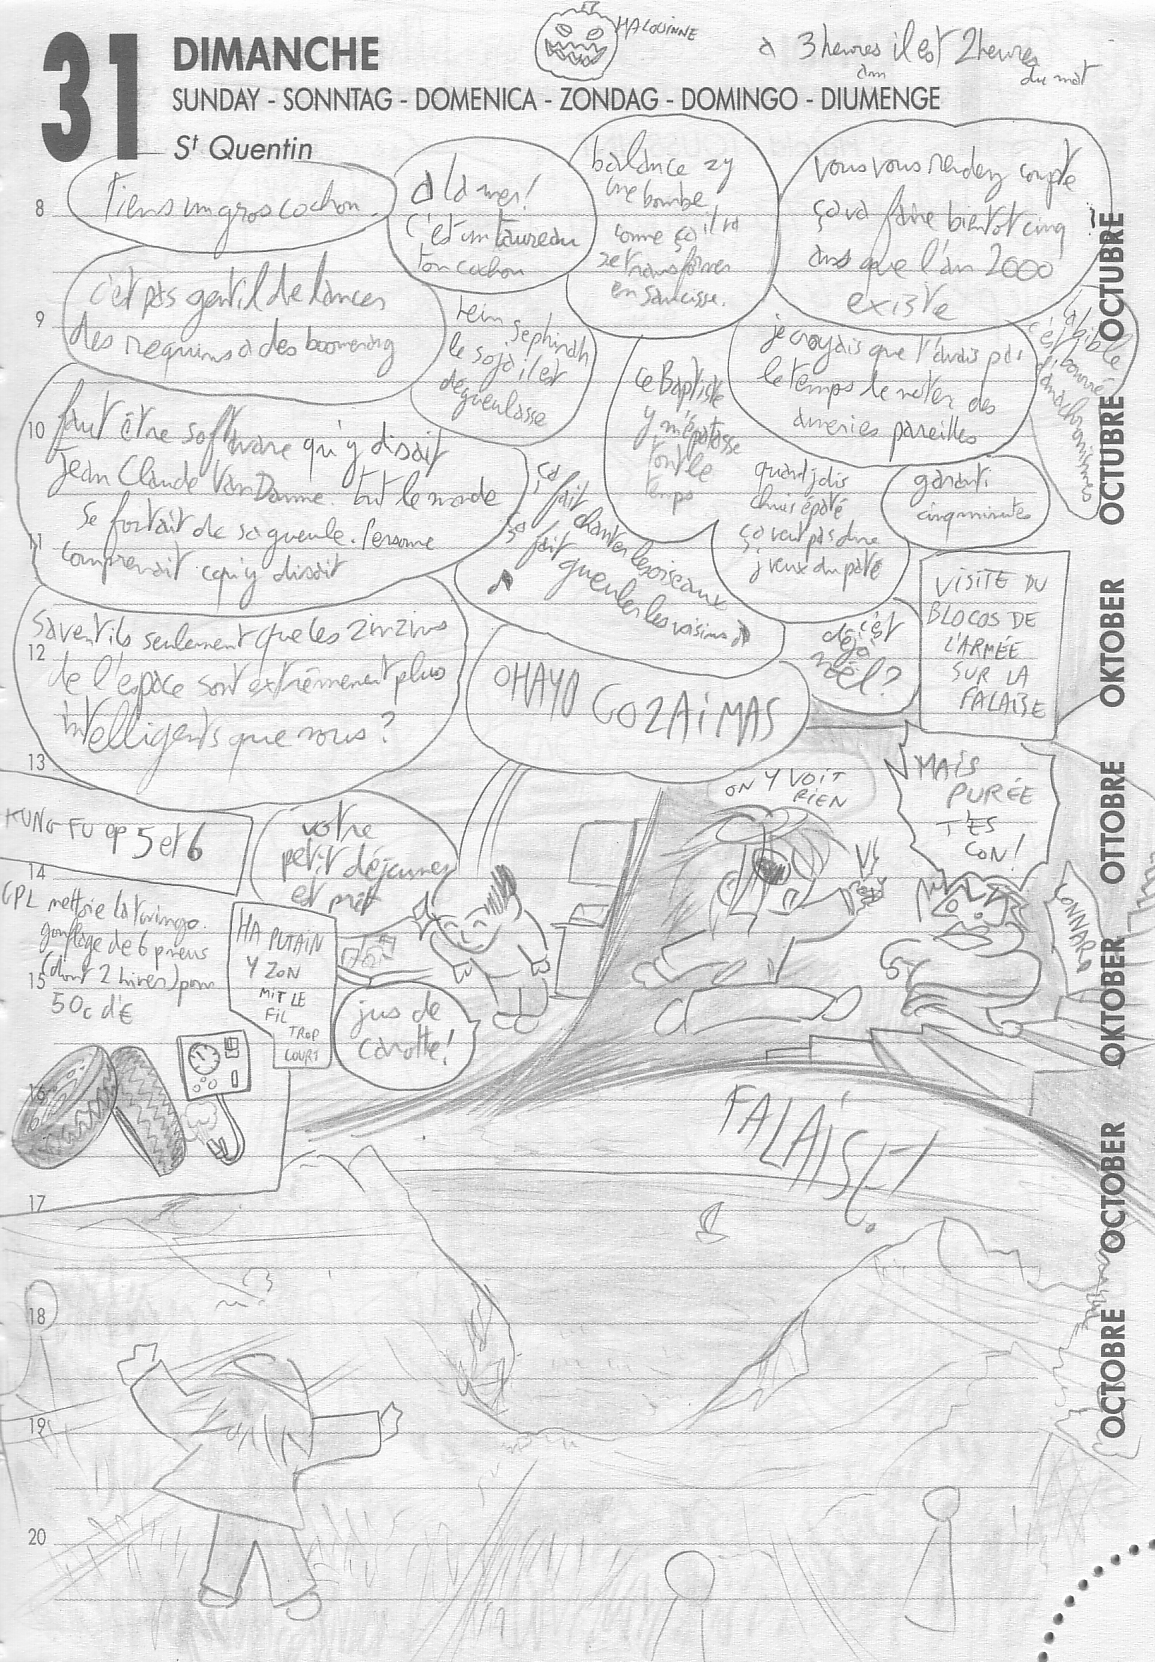 31
DIMANCHE
SUNDAY - SONNTAG - DOMENICA - ZONDAG - DOMINGO - DIUMENGE
St Quentin
HALOUINNE
à 3 heures il est 2 heures
du mat
Tiens un gros cochon.
à la mer!
c'est un taureau
ton cochon
balance zy
une bombe
comme ça il va
se transformer
en saucisse.
vous vous rendez compte
ça va faire bientot cinq
ans que l'an 2000
existe
c'est pas gentil de lancer
des requins à des boomerang
tein sephiroth
le soja il est
dégueulasse
ce Baptiste
y m'épatasse
tout le
temps
je croyais que t'avais pas
le temps de noter des
aneries pareilles
la bible
c'est bourré
d'anachronismes
faut être software qu'y disait
Jean Claude Van Damme. tout le monde
se foutait de sa gueule. Personne
comprenait cqu'y disait
ça fait chanter les oiseaux
ça fait gueuler les voisins
quand jdis
chuis épaté
ça veut pas dire
j'veux du pâté
garanti
cinq minutes
Savent ils seulement que les zinzins
de l'espace sont extrêmement plus
intelligents que nous?
OHAYO
GOZAIMAS
c'est
déjà
noël?
VISITE DU
BLOCOS DE
L'ARMÉE
SUR LA
FALAISE
ON Y VOIT
RIEN
MAIS
PURÉE
T'ES
CON!
CONNARD
KUNG FU ep 5 et 6
votre
petit déjeuner
est prêt
GPL nettoie la twingo.
gonflage de 6 pneus
(dont 2 hiver) pour
50c d'€
HA PUTAIN
Y ZON
MIT LE
FIL
TROP
COURT
jus de
carotte!
FALAISE!
8
9
10
11
12
13
14
15
16
17
18
19
20
OCTUBRE
OCTUBRE
OKTOBER
OTTOBRE
OKTOBER
OCTOBER
OCTOBRE